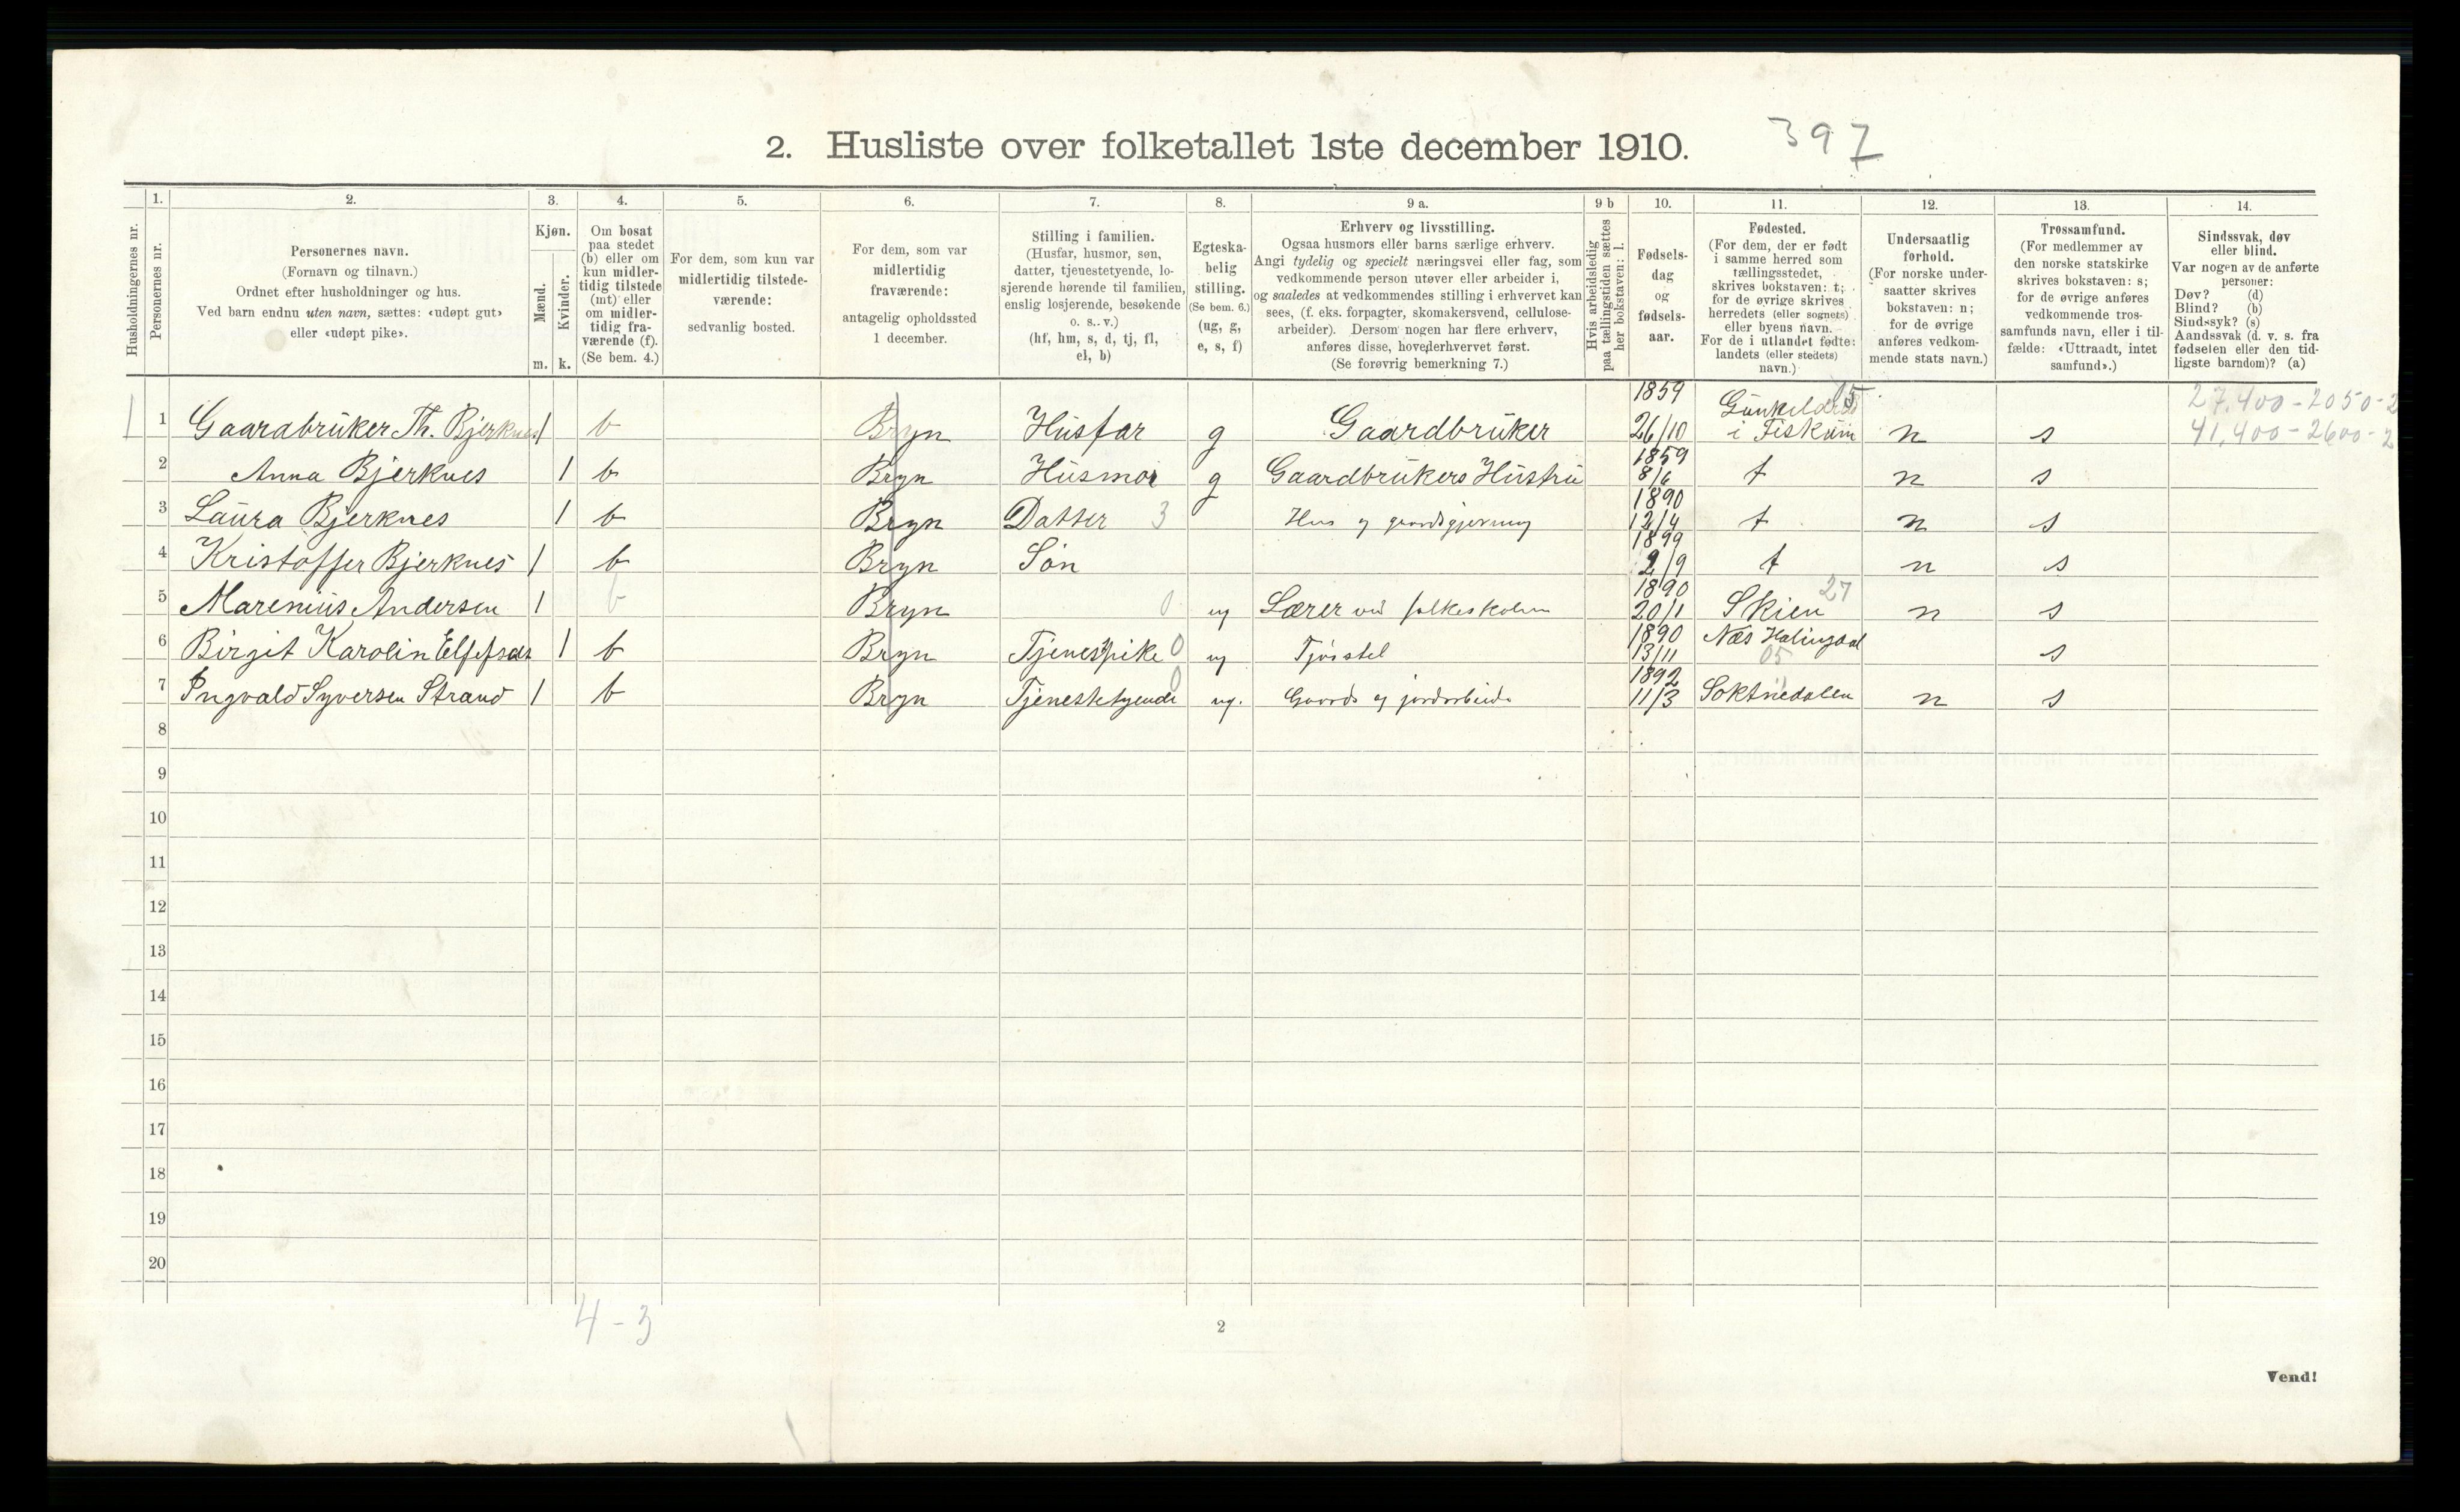 2. Husliste over folketallet 1ste december 1910.
397
Husholdningernes nr.
1. Personernes nr.
2. Personernes navn.
(Fornavn og tilnavn.)
Ordnet efter husholdninger og hus.
Ved barn endnu uten navn, sættes: «udøpt gut»
eller «udøpt pike».
3. Kjøn.
Mænd. m.
Kvinder. k.
4. Om bosat
paa stedet
(b) eller om
kun midler-
tidig tilstede
(mt) eller
om midler-
tidig fra-
værende (f).
(Se bem. 4.)
5. For dem, som kun var
midlertidig tilstede-
værende:
sedvanlig bosted.
6. For dem, som var
midlertidig
fraværende:
antagelig opholdssted
1 december.
7. Stilling i familien.
(Husfar, husmor, søn,
datter, tjenestetyende, lo-
sjerende hørende til familien,
enslig losjerende, besøkende
o. s. v.)
(hf, hm, s, d, tj, fl,
el, b)
8. Egteska-
belig
stilling.
(Se bem. 6.)
(ug, g,
e, s, f)
9 a. Erhverv og livsstilling.
Ogsaa husmors eller barns særlige erhverv.
Angi tydelig og specielt næringsvei eller fag, som
vedkommende person utøver eller arbeider i,
og saaledes at vedkommendes stilling i erhvervet kan
sees, (f. eks. forpagter, skomakersvend, cellulose-
arbeider). Dersom nogen har flere erhverv,
anføres disse, hovederhvervet først.
(Se forøvrig bemerkning 7.)
9 b Hvis arbeidsledig
paa tællingstiden sættes
her bokstaven: l.
10. Fødsels-
dag
og
fødsels-
aar.
11. Fødested.
(For dem, der er født
i samme herred som
tællingsstedet,
skrives bokstaven: t;
for de øvrige skrives
herredets (eller sognets)
eller byens navn.
For de i utlandet fødte:
landets (eller stedets)
navn.)
12. Undersaatlig
forhold.
(For norske under-
saatter skrives
bokstaven: n;
for de øvrige
anføres vedkom-
mende stats navn.)
13. Trossamfund.
(For medlemmer av
den norske statskirke
skrives bokstaven: s;
for de øvrige anføres
vedkommende tros-
samfunds navn, eller i til-
fælde: «Uttraadt, intet
samfund».)
14. Sindssvak, døv
eller blind.
Var nogen av de anførte
personer:
Døv? (d)
Blind? (b)
Sindssyk? (s)
Aandssvak (d. v. s. fra
fødselen eller den tid-
ligste barndom)? (a)
1 1 Gaardbruker Th. Bjerknes 1 b Bryn Husfar g Gaardbruker 1859 26/10 i Fiskum 05 n s 27,400-2050-2
41,400-2600-2
2 Anna Bjerknes 1 b Bryn Husmor g Gaardbrukers Hustru 1859 8/6 t n s
3 Laura Bjerknes 1 b Bryn Datter 3 Hus og 1890 12/4 t n s
4 Kristoffer Bjerknes 1 b Bryn Søn 1899 2/9 t n s
5 Marenius Andersen 1 b Bryn 0 ug Lærer ved folkeskolen 1890 20/1 Skien 27 n s
6 Birgit Karolin 1 b Bryn Tjenestpike 0 ug Fjøsstel 1890 13/11 Næs Halingdal 05 s
7 Ingvald Syversen Strand 1 b Bryn Tjenestetyende 0 ug. Gaards og jordarbeide 1892 11/3 Soknedalen n s
8
9
10
11
12
13
14
15
16
17
18
19
20
4-3
2
Vend!